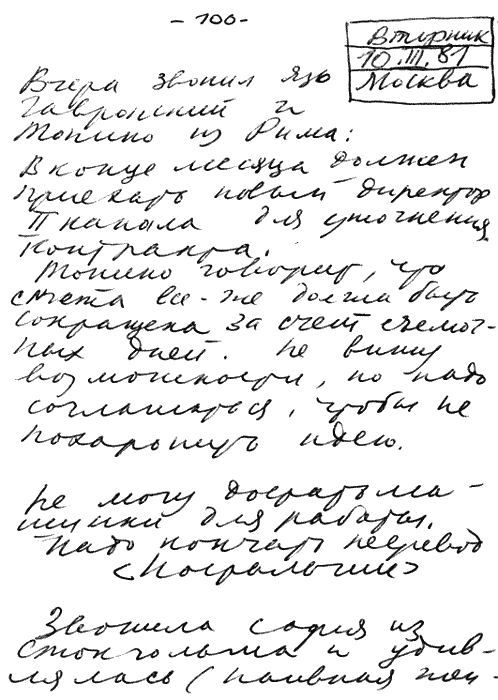 - 100 -
Вторник
10.III.81
Москва
Вчера звонил Яэк
Гавронский и
Тонино из Рима:
В конце месяца должен
приехать новый директор
II канала для уточнения
контракта.
Тонино говорит, что
смета все-же должна быть
сокращена за счет съемоч-
ных дней. Не вижу
возможности, но надо
соглашаться, чтобы не
похоронить идею.
Не могу достать ма-
шинки для работы.
Надо кончать перевод
<Ностальгии>
Звонила София из
Стокгольма и удив-
лялась (наивная жен-